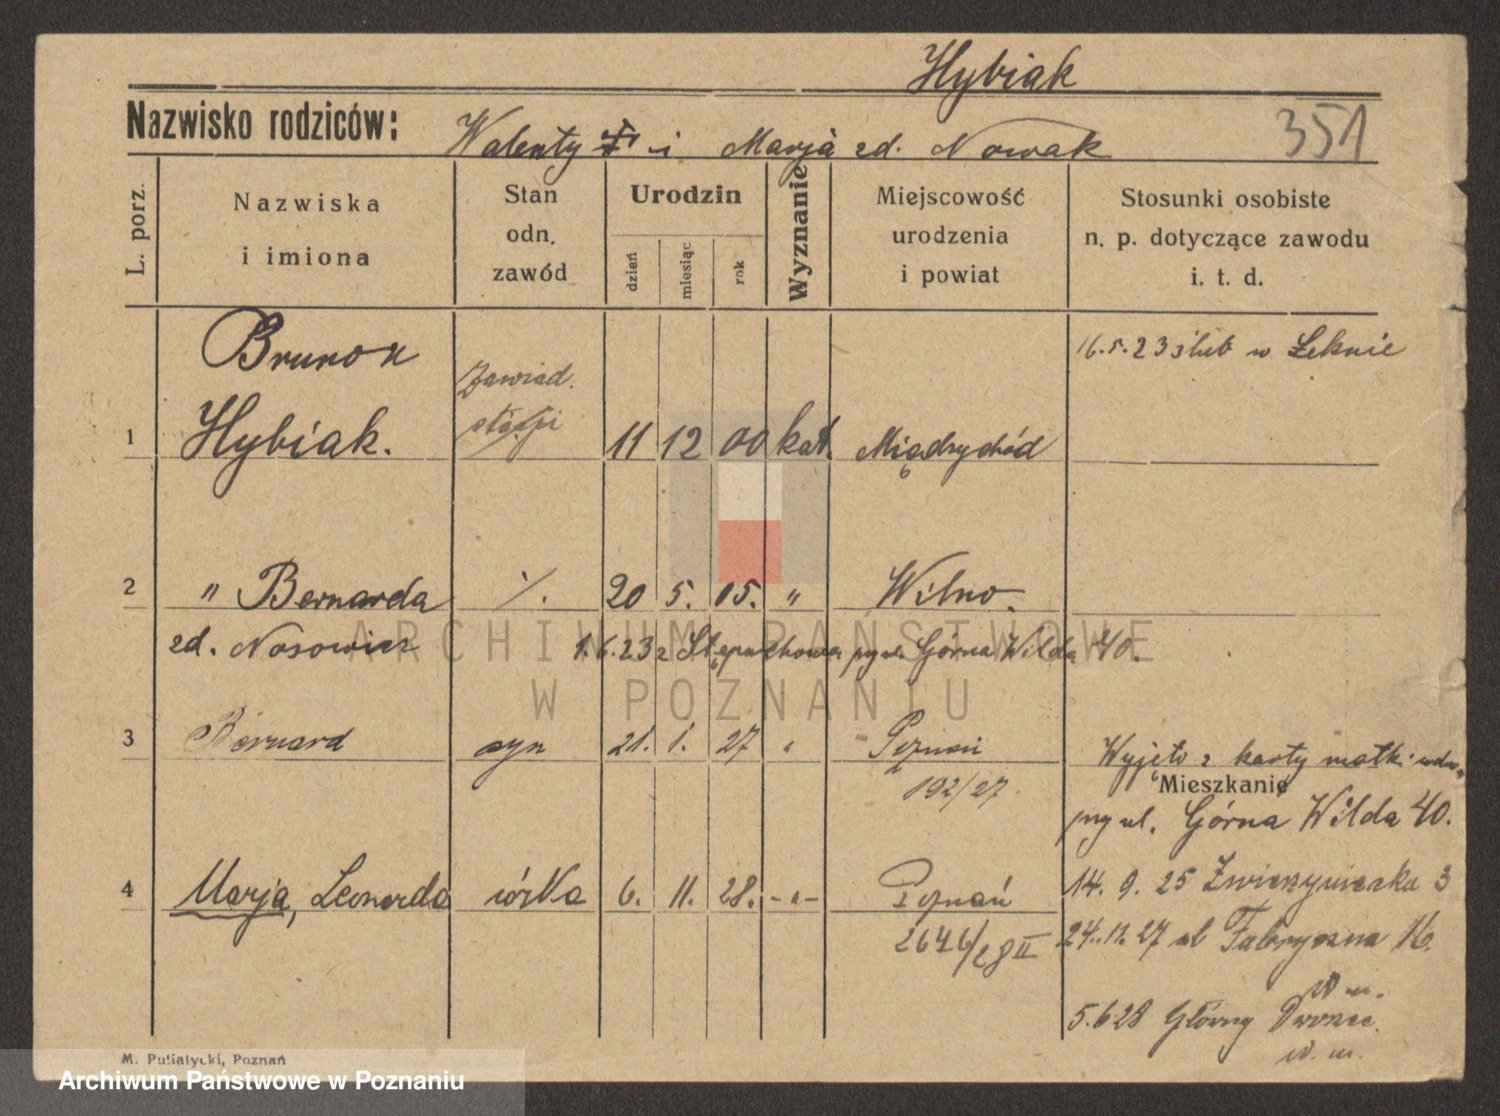 Hybiak
Nazwisko rodziców: Walenty i Marja zd. Nowak
351
L. porz.
Nazwiska
i imiona
Stan
odn.
zawód
Urodzin
dzień
miesiąc
rok
Wyznanie
Miejscowość
urodzenia
i powiat
Stosunki osobiste
n. p. dotyczące zawodu
i. t. d.
16.5.23 ślub w Łeknie
Brunon
1 Hybiak. zawiad. stacji 11 12 00 kat. Międzychód
2 " Bernarda ./. 20 5. 05. " Wilno.
zd. Nosowicz 1.6.23 z Stępuchowa przy ul. Górna Wilda 40.
3 Bernard syn 21. 1. 27 " Poznań
192/27.
Wyjęto z karty matki
Mieszkanie
przy ul. Górna Wilda 40.
4 Marja, Leonarda córka 6. 11. 28. -"- Poznań
2646/28 II
14. 9. 25 Zwierzyniecka 3
24.12.27 ul Fabryczna 16.
W m.
5.6.28 Główny Dworzec.
W. m.
ARCHIWUM PAŃSTWOWE
W POZNANIU
M. Putiatycki, Poznań
Archiwum Państwowe w Poznaniu